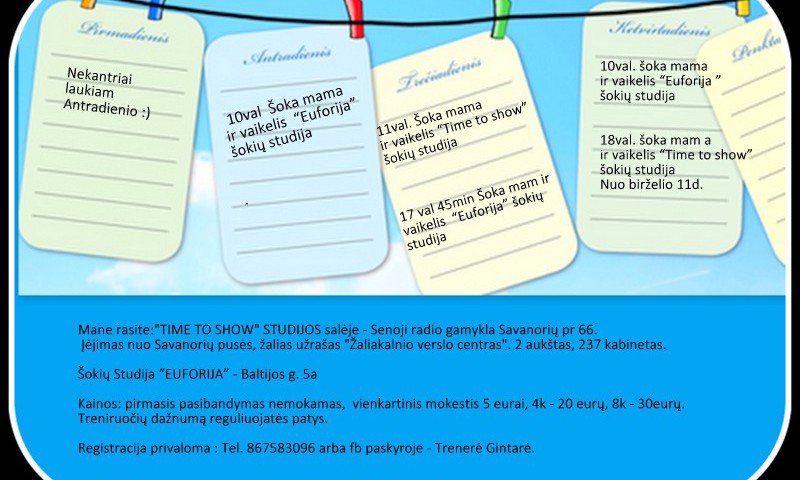 Pirmadienis
Nekantriai
laukiam
Antradienio :)
Antradienis
10val Šoka mama
ir vaikelis “Euforija”
šokių studija
.
Trečiadienis
11val. Šoka mama
ir vaikelis “Time to show”
šokių studija
17 val 45min Šoka mam ir
vaikelis “Euforija” šokių
studija
Ketvirtadienis
10val. šoka mama
ir vaikelis “Euforija ”
šokių studija
18val. šoka mam a
ir vaikelis “Time to show”
šokių studija
Nuo birželio 11d.
Penkta
Mane rasite:"TIME TO SHOW" STUDIJOS salėje - Senoji radio gamykla Savanorių pr 66.
Įėjimas nuo Savanorių pusės, žalias užrašas "Žaliakalnio verslo centras". 2 aukštas, 237 kabinetas.
Šokių Studija “EUFORIJA” - Baltijos g. 5a
Kainos: pirmasis pasibandymas nemokamas, vienkartinis mokestis 5 eurai, 4k - 20 eurų, 8k - 30eurų.
Treniruočių dažnumą reguliuojatės patys.
Registracija privaloma : Tel. 867583096 arba fb paskyroje - Trenerė Gintarė.